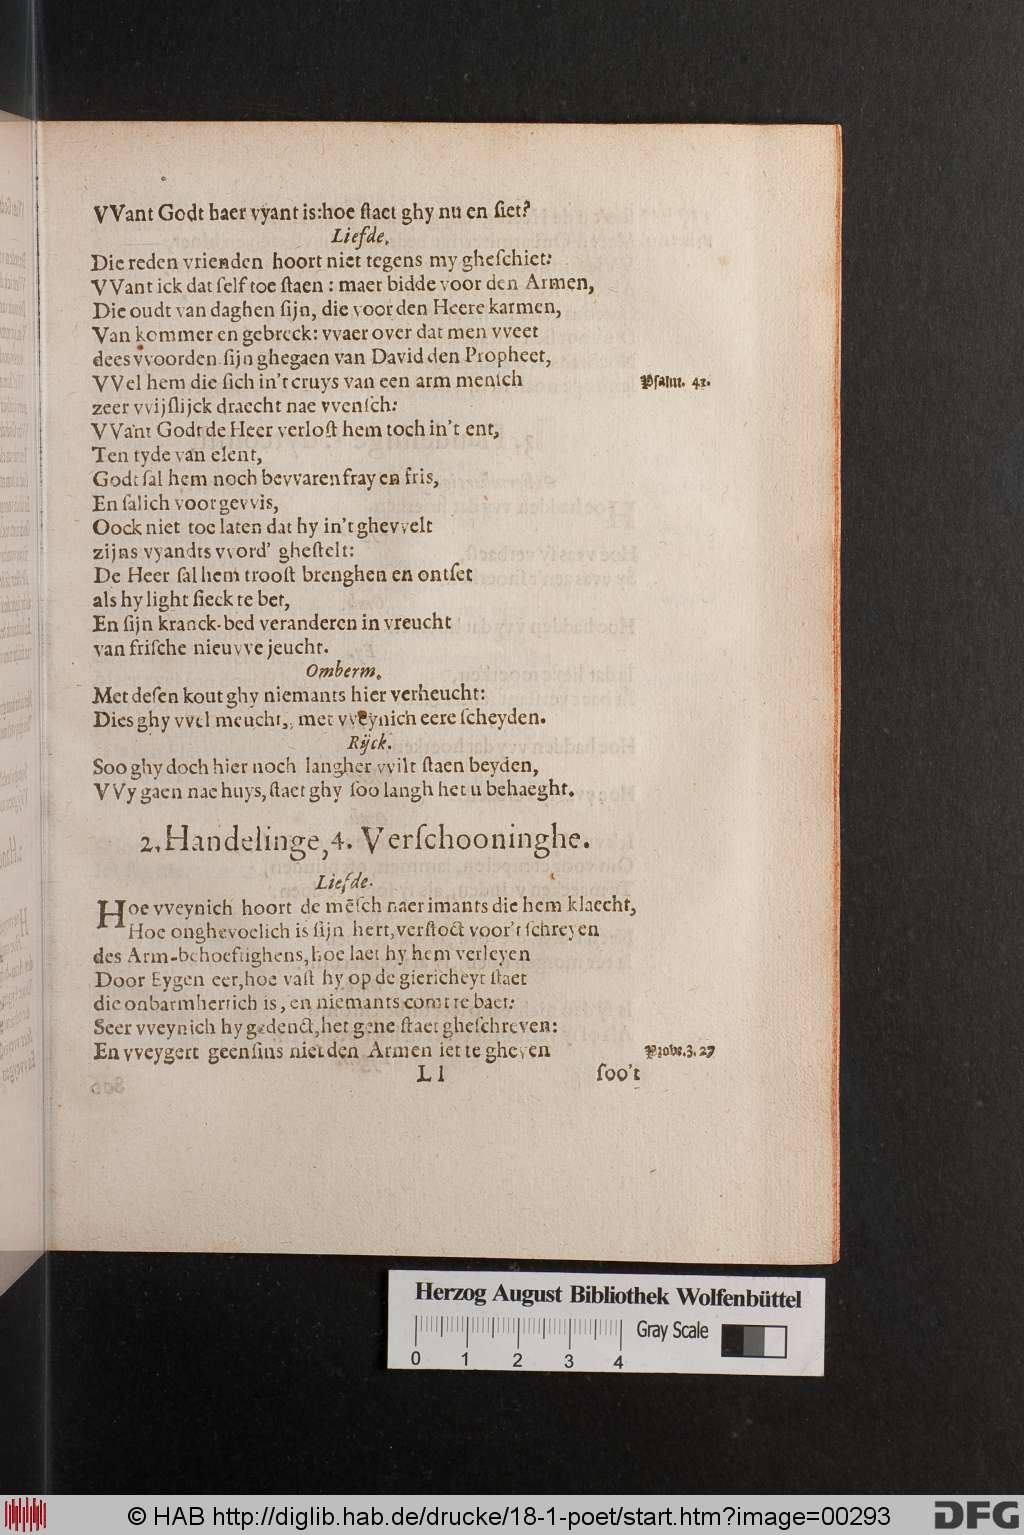 VVant Godt haer vyant is:hoe ſtaet ghy nu en ſiet?
Liefde.
Die reden vrienden hoort niet tegens my gheſchiet:
VVant ick dat ſelf toe ſtaen : maer bidde voor den Armen,
Die oudt van daghen ſijn, die voor den Heere karmen,
Van kommer en gebreck: vvaer over dat men vveet
dees vvoorden ſijn ghegaen van David den Propheet,
VVel hem die ſich in't cruys van een arm menſch
Pſalm. 41.
zeer vvijſlijck draecht nae vvenſch:
VVant Godt de Heer verloſt hem toch in't ent,
Ten tyde van elent,
Godt ſal hem noch bevvaren fray en fris,
En ſalich voor gevvis,
Oock niet toe laten dat hy in't ghevvelt
zijns vyandts vvord' gheſtelt:
De Heer ſal hem trooſt brenghen en ontſet
als hy light ſieck te bet,
En ſijn kranck-bed veranderen in vreucht
van friſche nieuvve jeucht.
Omberm.
Met deſen kout ghy niemants hier verheucht:
Dies ghy vvel meucht, met vveynich eere ſcheyden.
Rijck.
Soo ghy doch hier noch langher vvilt ſtaen beyden,
VVy gaen nae huys, ſtaet ghy ſoo langh het u behaeght.
2. Handelinge, 4. Verſchooninghe.
Liefde.
Hoe vveynich hoort de mēſch naer imants die hem klaecht,
Hoe onghevoelich is ſijn hert, verſtoct voor't ſchreyen
des Arm-behoeftighens, hoe laet hy hem verleyen
Door Eygen eer, hoe vaſt hy op de giericheyt ſtaet
die onbarmhertich is, en niemants comt te baet:
Seer vveynich hy gedenct, het gene ſtaet gheſchreven:
En vveygert geenſins niet den Armen iet te gheven
Probe. 3. 27
Ll
ſoo't
Herzog August Bibliothek Wolfenbüttel
Gray Scale
0 1 2 3 4
© HAB http://diglib.hab.de/drucke/18-1-poet/start.htm?image=00293
DFG